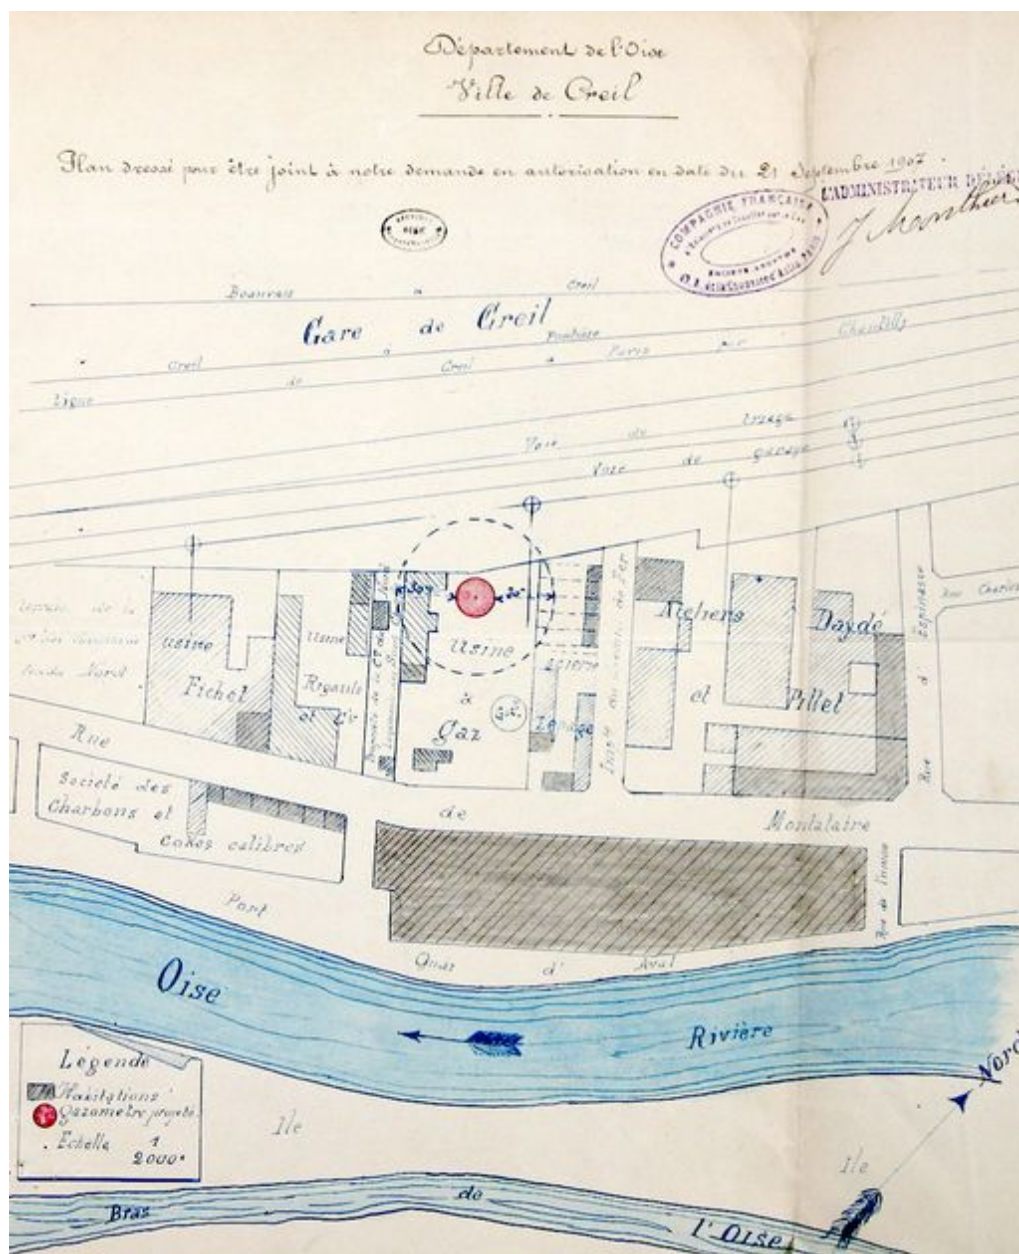 Département de l'Oise
Ville de Creil
Plan dressé pour être joint à notre demande en autorisation en date du 21 Septembre 1907.
L'ADMINISTRATEUR DÉLÉG
COMPAGNIE FRANÇAISE
SOCIÉTÉ ANONYME
Beauvais à Creil
Gare de Creil
Creil à Pontoise
Ligne de Creil à Paris par Chantilly
Voie de
Voie de garage
Usine
Fichet
Usine
Rigault
et Cie
Usine
à
gaz
Lepage
Ateliers
et
Daydé
Pillet
Rue d'Espinasse
Rue Charles
Rue de Montataire
Société des
Charbons et
Cokes calibrés
Port
Quai d'Aval
Rue de l'Union
Oise
Rivière
Nord
Légende
Habitations
Gazomètre projeté
Echelle 1
2000e
Ile
Ile
Bras de l'Oise